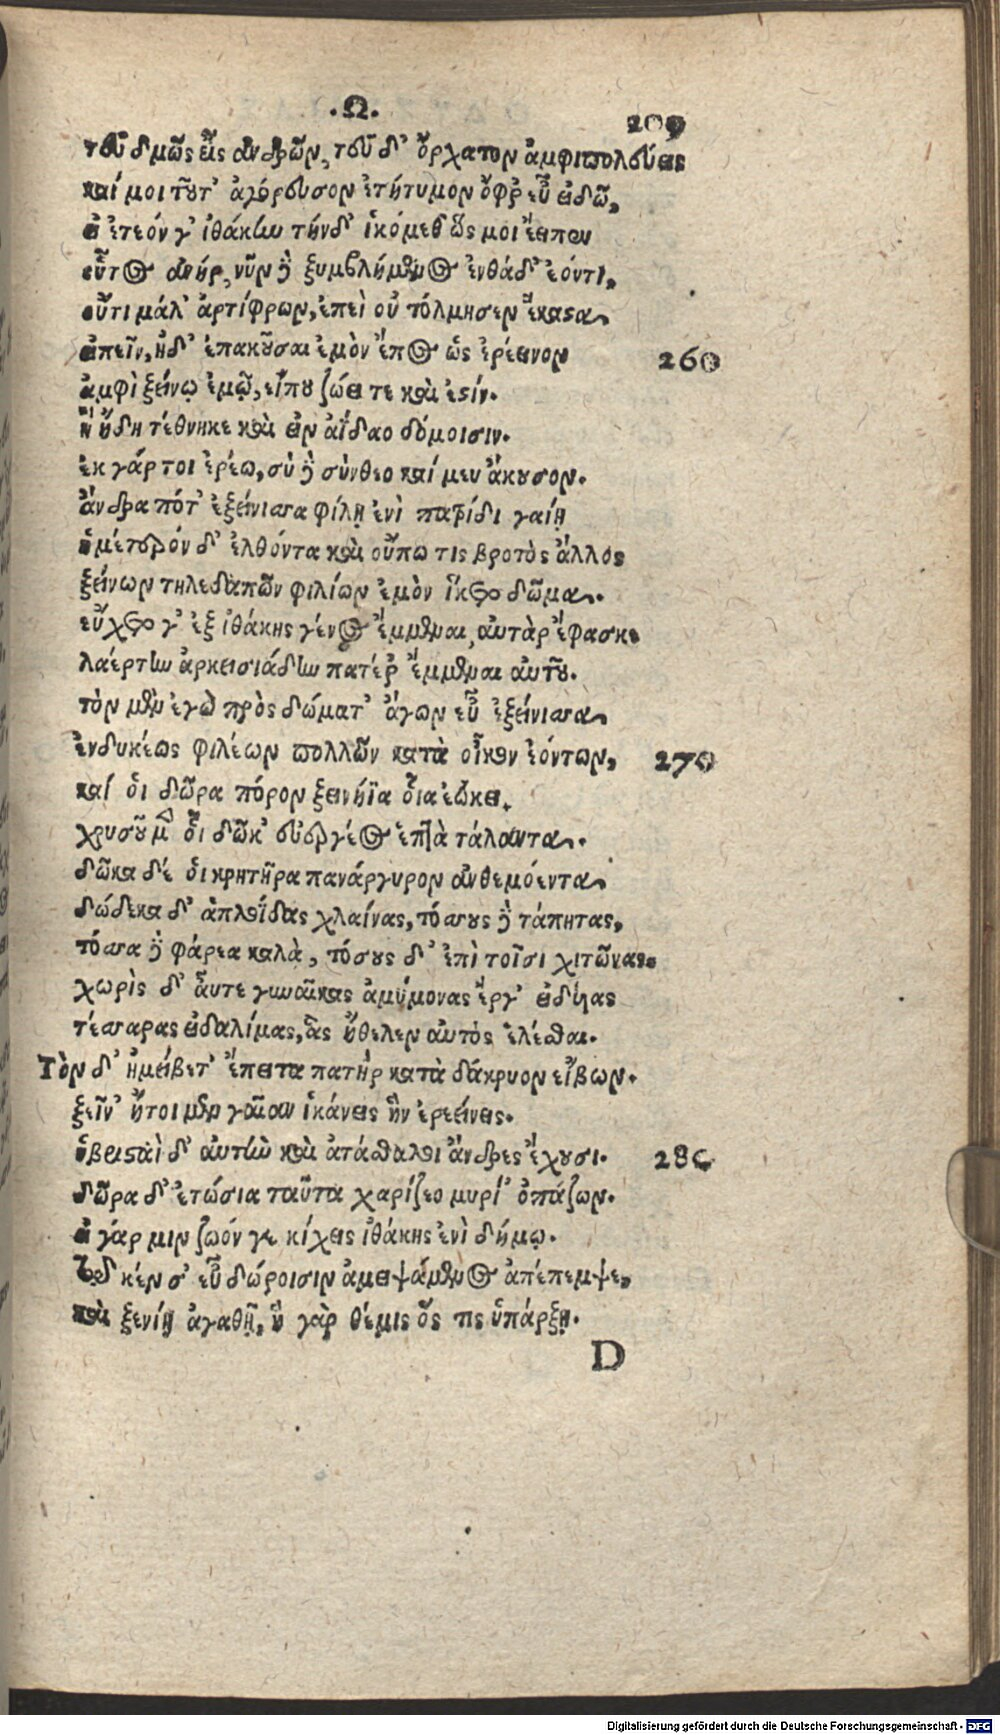 .Ω. 209
τεῦ δμῶς εἶς ἀνδρῶν, τεῦ δ' ὄρχατον ἀμφιπολεύεις
καί μοι τοῦτ' ἀγόρευσον ἐτήτυμον ὄφρ' εὖ εἰδῶ,
εἰ ἐτεόν γ' ἰθάκην τήνδ' ἱκόμεθ' ὥς μοι ἔειπεν
οὗτος ἀνήρ, νῦν δὴ ξυμβλήμενος ἐνθάδ' ἐόντι,
οὔτι μάλ' ἀρτίφρων, ἐπεὶ οὐ τόλμησεν ἕκαστα,
εἰπεῖν, ἠδ' ἐπακοῦσαι ἐμὸν ἔπος ὡς ἐρέεινον 260
ἀμφὶ ξείνῳ ἐμῷ, εἴπου ζώει τε καὶ ἐστίν.
ἢ ἤδη τέθνηκε καὶ εἰν ἀΐδαο δόμοισιν.
ἐκ γάρ τοι ἐρέω, σὺ δὲ σύνθεο καί μευ ἄκουσον.
ἄνδρα πότ' ἐξείνισσα φίλῃ ἐνὶ πατρίδι γαίῃ
ἡμέτερόν δ' ἐλθόντα καὶ οὔπω τις βροτὸς ἄλλος
ξείνων τηλεδαπῶν φιλίων ἐμὸν ἵκετο δῶμα.
εὔχετο γ' ἐξ ἰθάκης γένος ἔμμεναι, αὐτὰρ ἔφασκε
λαέρτην ἀρκεισιάδην πατέρ' ἔμμεναι αὐτοῦ.
τὸν μὲν ἐγὼ πρὸς δώματ' ἄγων εὖ ἐξείνισσα,
ἐνδυκέως φιλέων πολλῶν κατὰ οἶκον ἐόντων, 270
καί οἱ δῶρα πόρον ξεινήϊα οἷα ἐῴκει.
χρυσοῦ μέν οἱ δῶκ' εὐεργέος ἑπτὰ τάλαντα.
δῶκα δέ οἱ κρητῆρα πανάργυρον ἀνθεμόεντα,
δώδεκα δ' ἁπλοΐδας χλαίνας, τόσσους δὲ τάπητας,
τόσσα δὲ φάρεα καλὰ, τόσους δ' ἐπὶ τοῖσι χιτῶνας.
χωρὶς δ' αὖτε γυναῖκας ἀμύμονας ἔργ' εἰδυίας
τέσσαρας εἰδαλίμας, ἃς ἤθελεν αὐτὸς ἑλέσθαι.
Τὸν δ' ἠμείβετ' ἔπειτα πατὴρ κατὰ δάκρυον εἴβων.
ξεῖν' ἤτοι μὲν γαῖαν ἱκάνεις ἣν ἐρεείνεις.
ὑβρισταὶ δ' αὐτὴν καὶ ἀτάσθαλοι ἄνδρες ἔχουσι. 280
δῶρα δ' ἐτώσια ταῦτα χαρίζεο μυρί' ὀπάζων.
εἰ γάρ μιν ζωόν γε κίχεις ἰθάκης ἐνὶ δήμῳ.
τῷ κέν σ' εὖ δώροισιν ἀμειψάμενος ἀπέπεμψε,
καὶ ξενίῃ ἀγαθῇ, ἣ γὰρ θέμις ὅς τις ὑπάρξῃ.
D
Digitalisierung gefördert durch die Deutsche Forschungsgemeinschaft - DFG